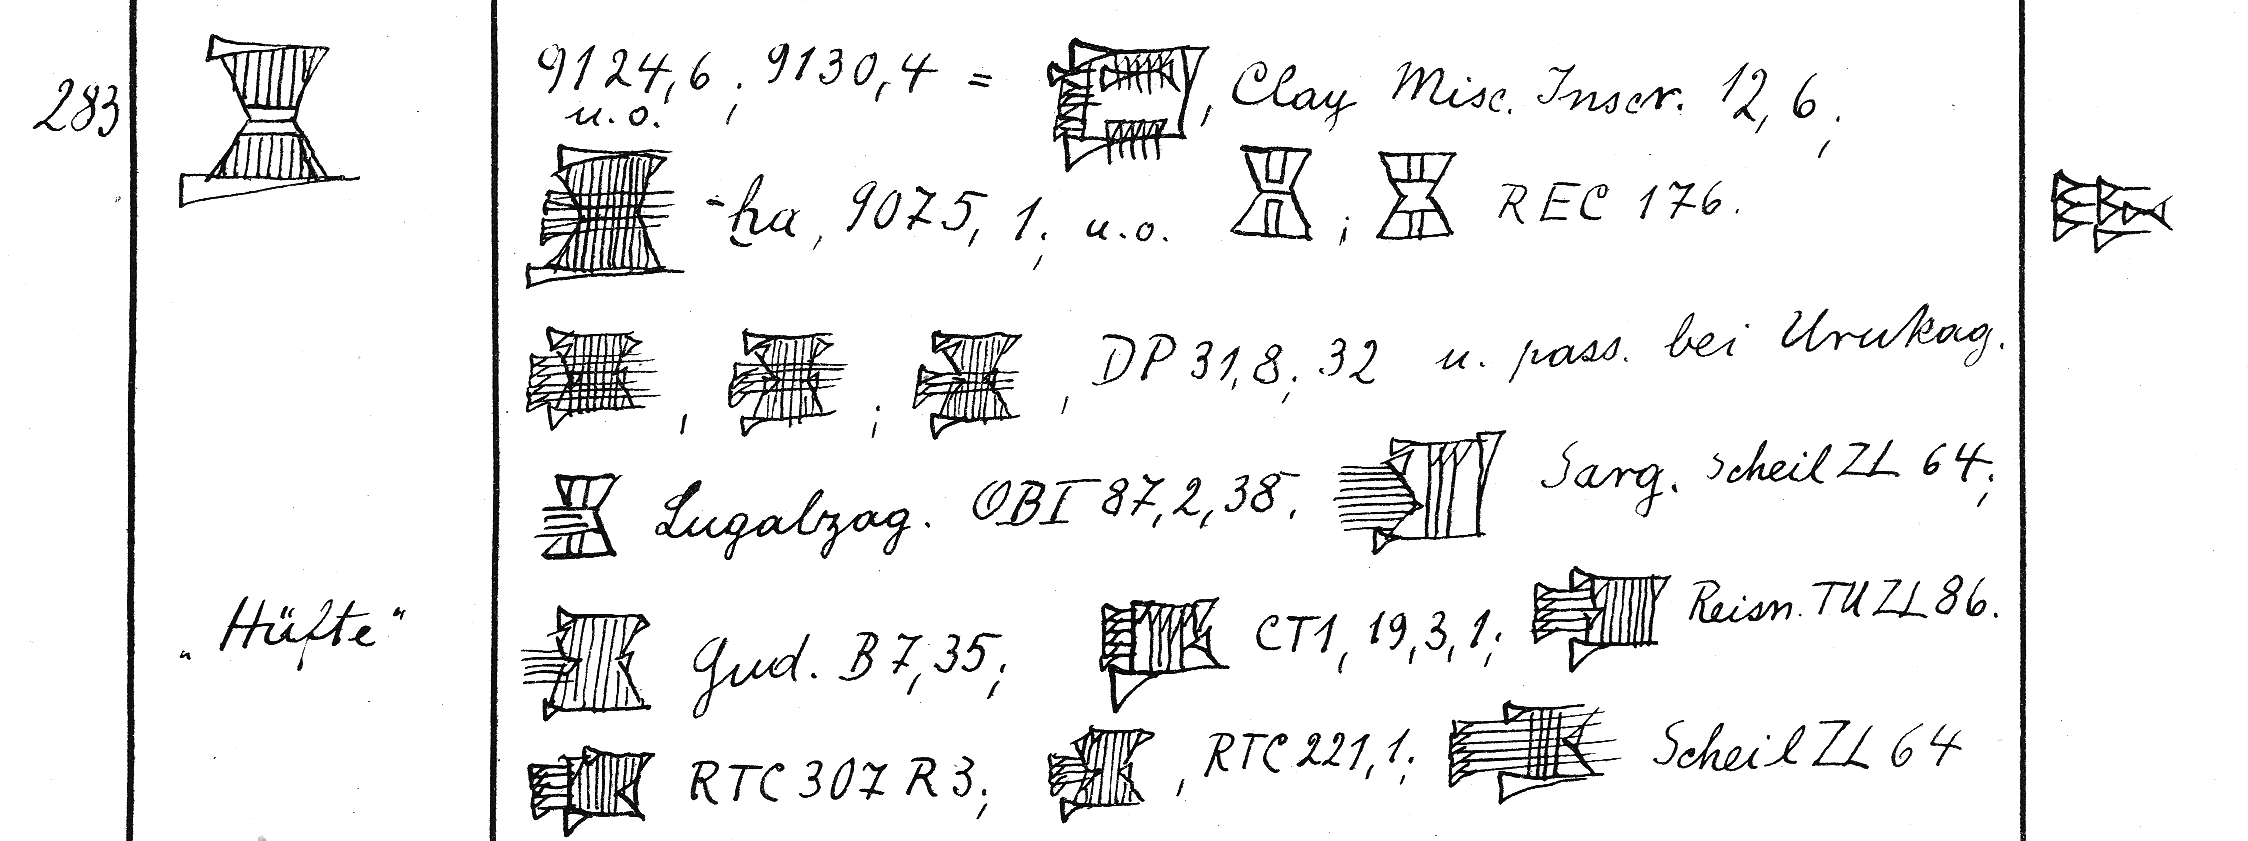 283
9124,6 ; 9130,4 = , Clay Misc. Inscr. 12,6 ;
u.o.
-ḫa, 9075, 1; u.o. ; REC 176.
, ; , DP 31,8; 32 u. pass. bei Urukag.
Lugalzag. OBI 87,2,38; Sarg. Scheil ZL 64;
„Hüfte“ Gud. B 7,35; CT1, 19,3,1; Reisn. TU ZL 86.
RTC 307 R 3; , RTC 221,1; Scheil ZL 64